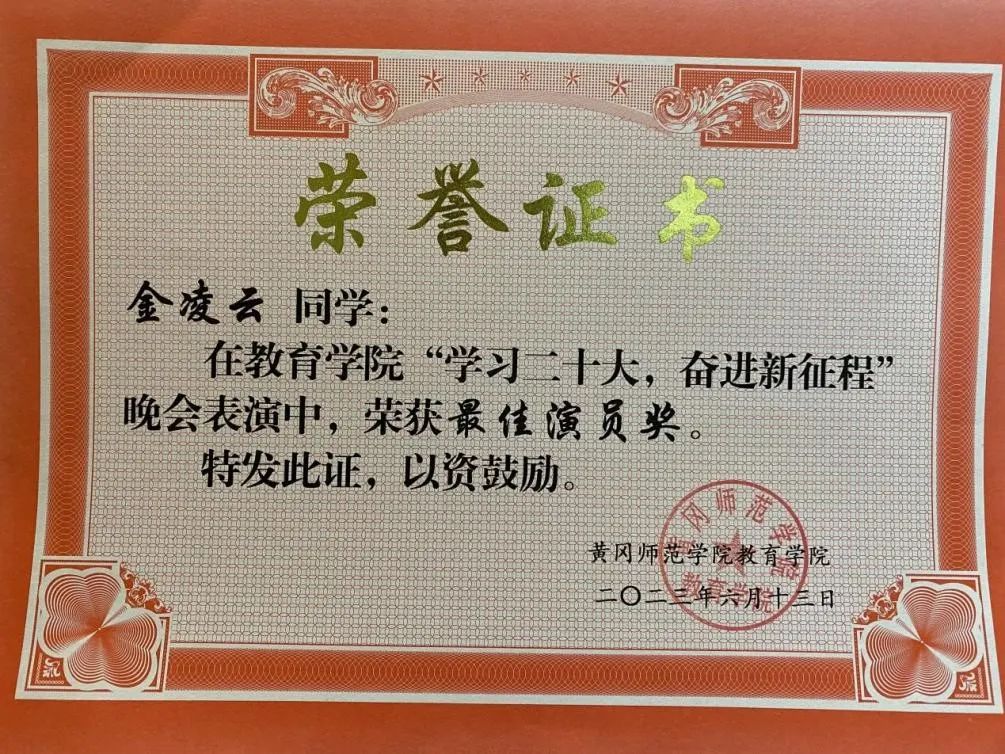 荣誉证书
金凌云 同学：
在教育学院“学习二十大，奋进新征程”
晚会表演中，荣获最佳演员奖。
特发此证，以资鼓励。
黄冈师范学院教育学院
二〇二三年六月十三日
黄冈师范学院
教育学院